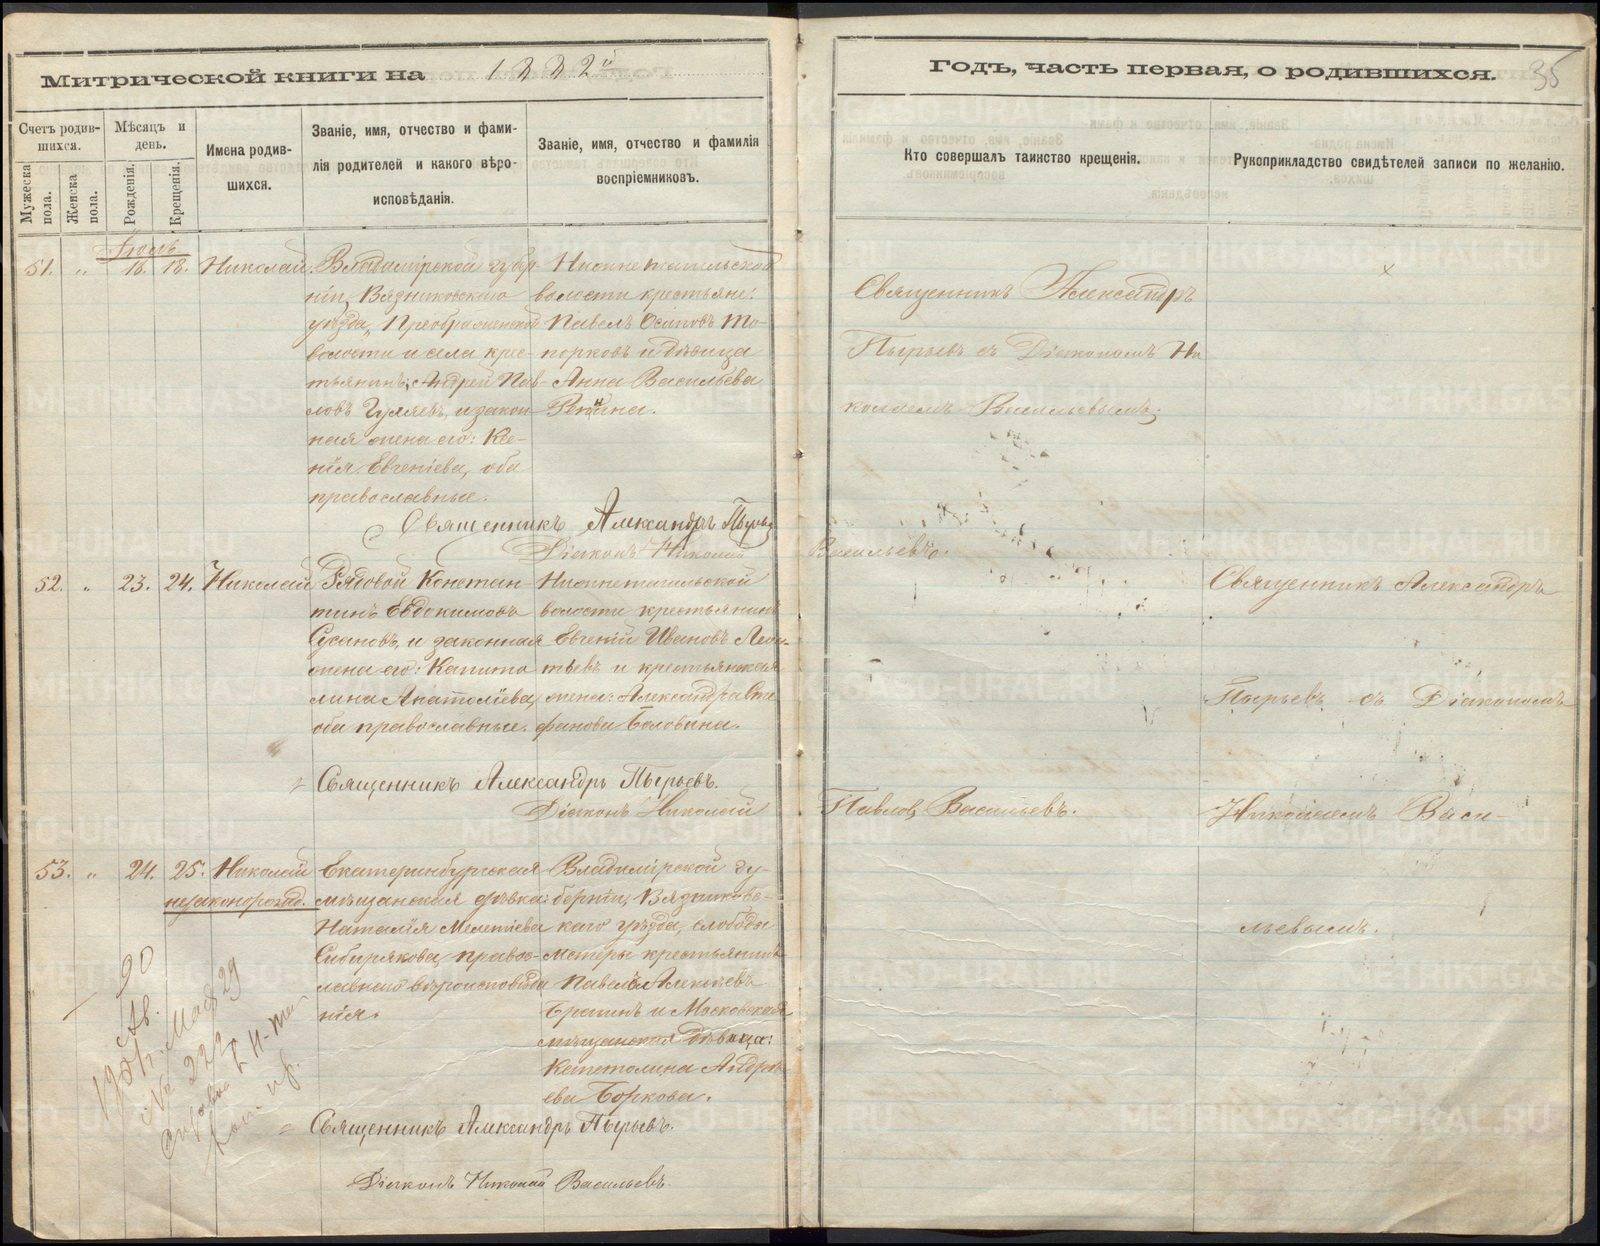 Митрической книги на 1882й
Годъ, часть первая, о родившихся. 35
Счетъ родив-
шихся.
Мужеска
пола.
Женска
пола.
Мѣсяцъ и
день.
Рожденія.
Крещенія.
Имена родив-
шихся.
Званіе, имя, отчество и фами-
лія родителей и какого вѣро-
исповѣданія.
Званіе, имя, отчество и фамилія
воспріемниковъ.
Кто совершалъ таинство крещенія.
Рукоприкладство свидѣтелей записи по желанію.
51. „ 18. Николай.
Владимірской губер-
ніи, Вязниковскаго
уѣзда, Преображенской
волости и села крес-
тьянинъ Андрей Пав-
ловъ и закон-
ная жена его: Ксе-
нія Евгеніева, оба
православные.
Нижнетагильской
волости крестьяне:
Павелъ Осиповъ То-
порковъ и дѣвица
Анна Васильева
Священникъ Александръ
Пырьевъ съ Діакономъ Ни
колаемъ Васильевымъ.
Священникъ Александръ Пырьев
Діаконъ Николай Васильевъ.
52. „ 23. 24. Николай
Рядовой Констан-
тинъ Евдокимовъ
Сусановъ, и законная
жена его: Капито
лина Анатоліева,
оба православные.
Нижнетагильской
волости крестьянинъ
Евгеній Ивановъ
и крестьянская
жена: Александра Сте
фанова Боловина.
Священникъ Александръ
Пырьевъ съ Діакономъ
Николаемъ Васи-
льевымъ.
Священникъ Александръ Пырьевъ.
Діаконъ Николай
Павловъ Васильевъ.
53. „ 24. 25. Николай
незаконорожд.
Екатеринбургская
мѣщанская дѣвка:
Наталія Мелетіева
Сибирякова, правос-
лавнаго вѣроисповѣда
нія.
Владимірской гу-
берніи, Вязниковс-
каго уѣзда, слободы
Мстеры крестьянинъ
Павелъ Алексѣевъ
и Московская
мѣщанская дѣвица:
Капетолина Андре
ева Боркова.
Священникъ Александръ Пырьевъ.
Діаконъ Николай Васильевъ.